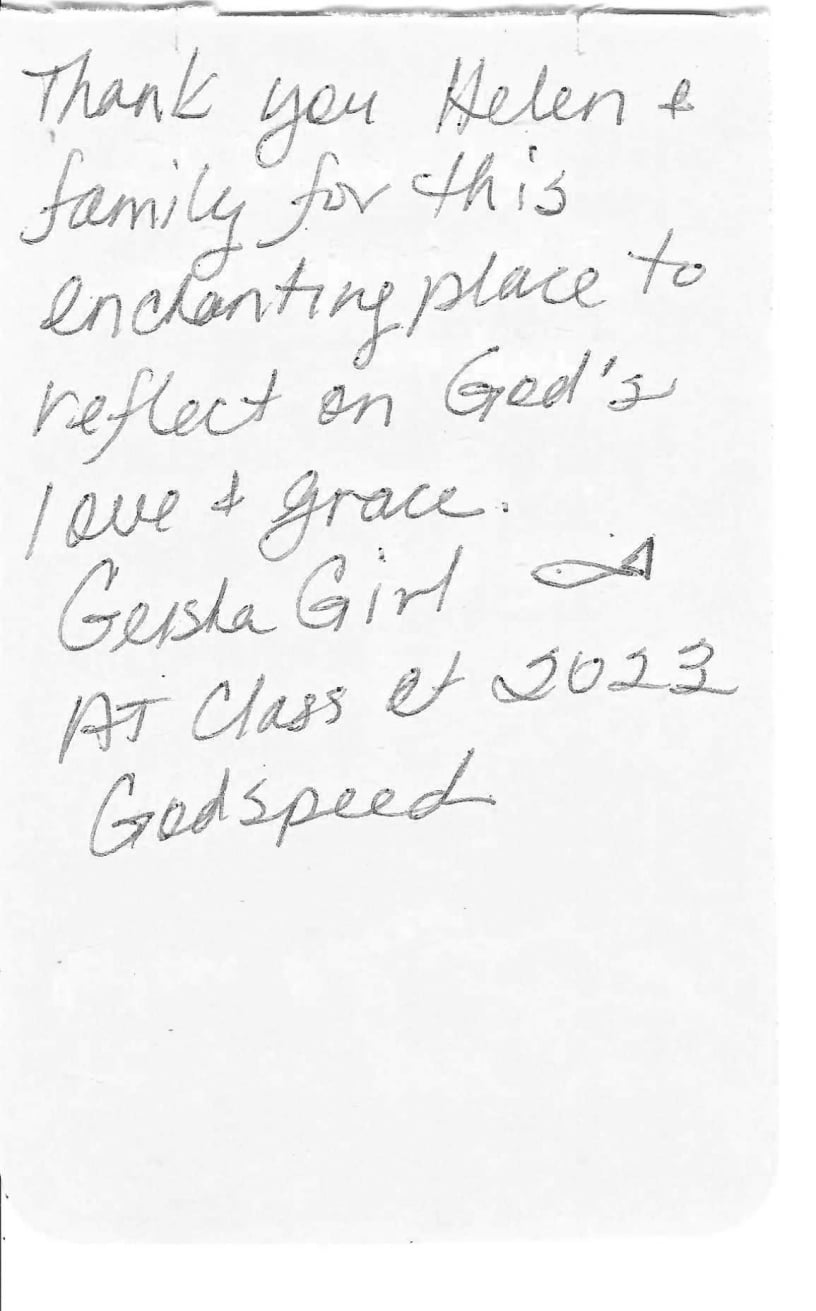 Thank you Helen &
family for this
enchanting place to
reflect on God's
love & grace.
Geisha Girl
AT Class of 2022
Godspeed